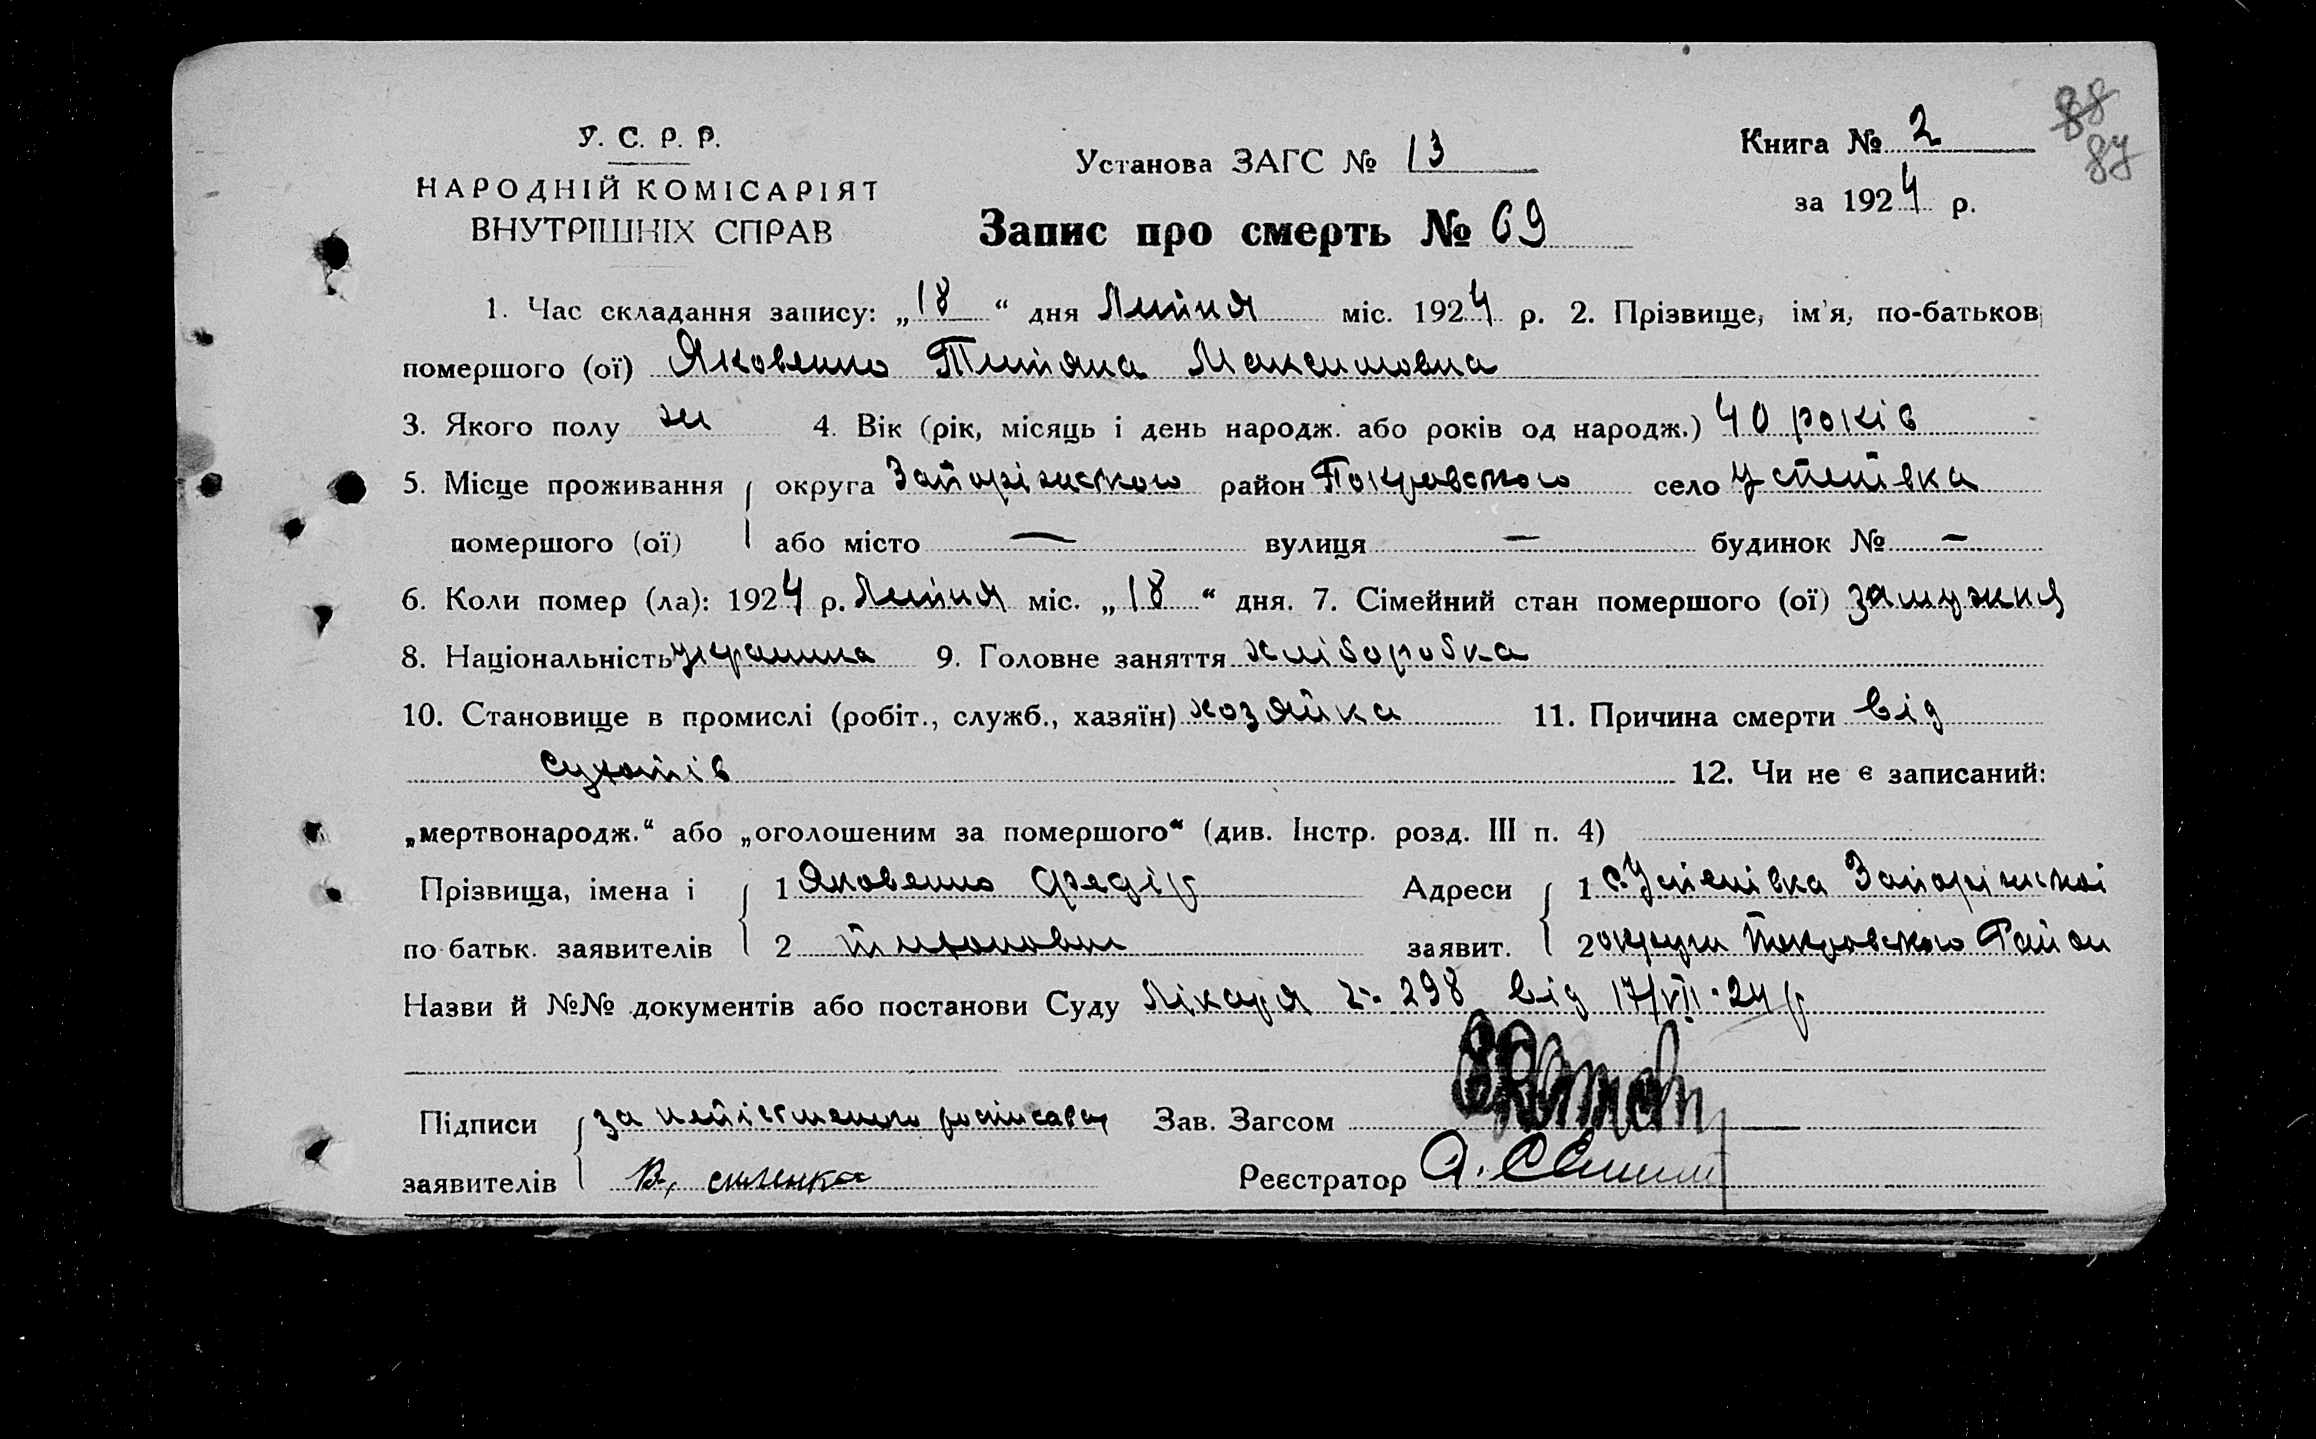 88
87
У. С. Р. Р.
НАРОДНІЙ КОМІСАРІЯТ
ВНУТРІШНІХ СПРАВ
Установа ЗАГС № 13
Книга № 2
за 1924 р.
Запис про смерть № 69
1. Час складання запису: „18“ дня Липня міс. 1924 р. 2. Прізвище, ім'я, по-батьков
помершого (ої) Яковенко Титяна Максимовна
3. Якого полу ж 4. Вік (рік, місяць і день народж. або років од народж.) 40 років
5. Місце проживання округа Запоріжського район Покровського село Успенівка
помершого (ої) або місто — вулиця — будинок № —
6. Коли помер (ла): 1924 р. Липня міс. „18“ дня. 7. Сімейний стан помершого (ої) замужня
8. Національність украинка 9. Головне заняття хліборобка
10. Становище в промислі (робіт., служб., хазяїн) хозяйка 11. Причина смерти від
сухотів 12. Чи не є записаний:
„мертвонародж.“ або „оголошеним за помершого“ (див. Інстр. розд. III п. 4)
Прізвища, імена і 1 Яковенко Федір Адреси 1 с. Успенівка Запоріжскоі
по батьк. заявителів 2 Тихонович заявит. 2 округи Покровського Район
Назви й №№ документів або постанови Суду Лікаря 298 від 17/VII-24 р
Підписи за неписьменого росписався Зав. Загсом
заявителів В. Реєстратор